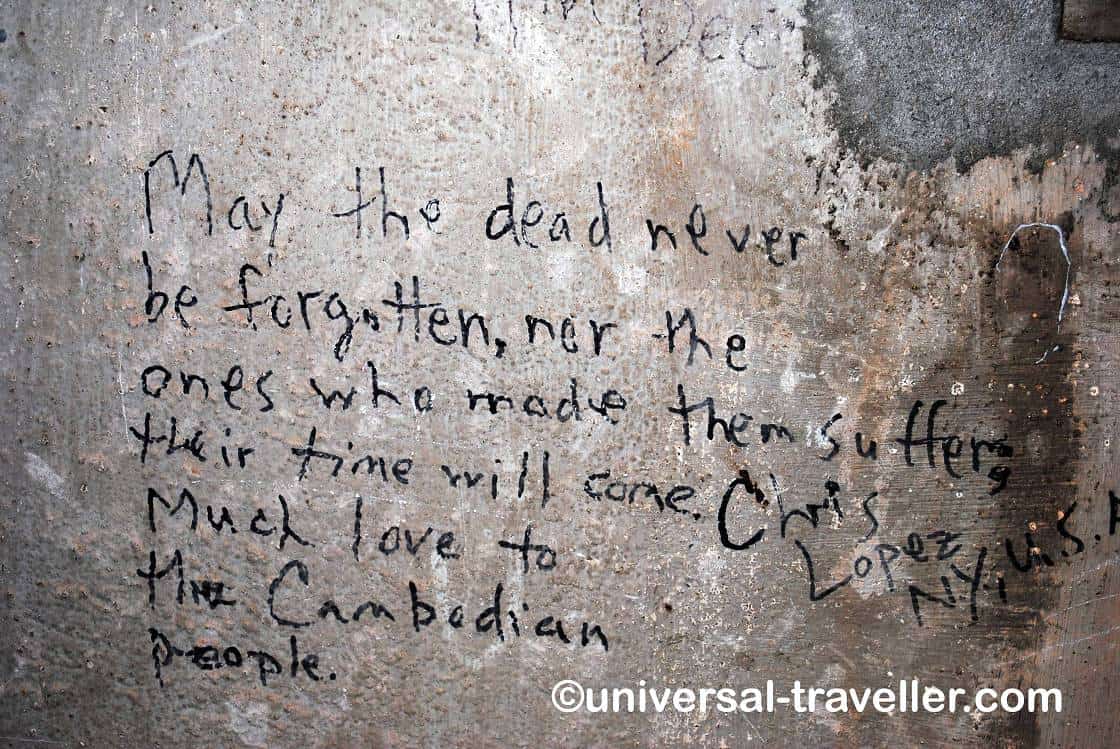 Dec
May the dead never
be forgotten, nor the
ones who made them suffer,
their time will come. Chris
Much love to Lopez
N.Y., U.S.
the Cambodian
people.
©universal-traveller.com